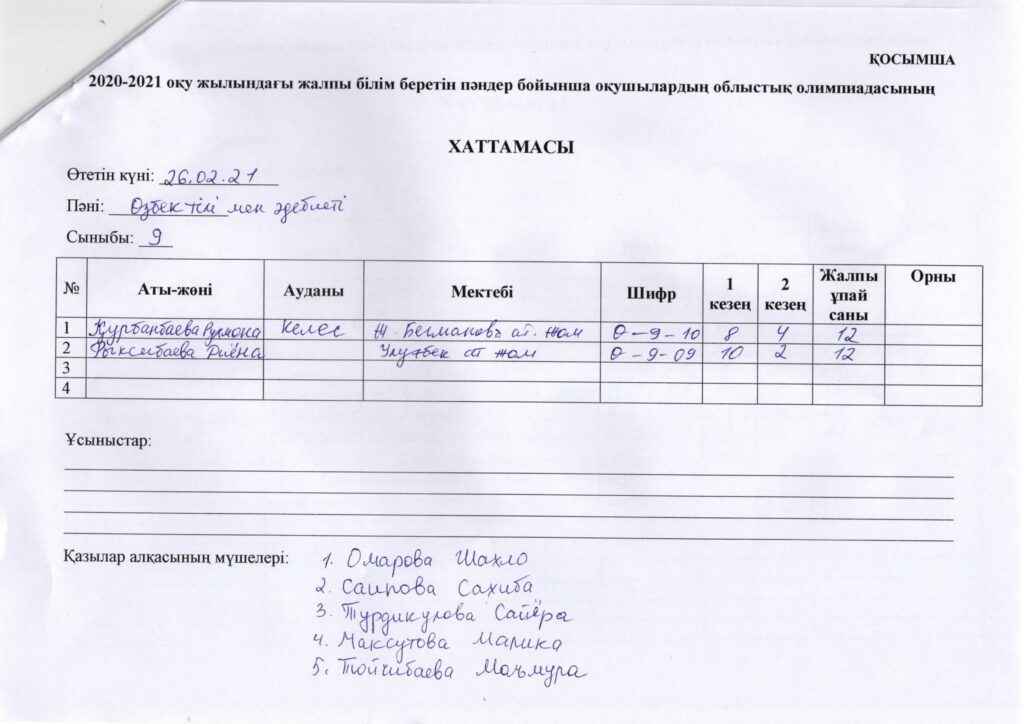 ҚОСЫМША
2020-2021 оқу жылындағы жалпы білім беретін пәндер бойынша оқушылардың облыстық олимпиадасының
ХАТТАМАСЫ
Өтетін күні: 26.02.21
Пәні: Өзбек тілі мен әдебиеті
Сыныбы: 9
№ Аты-жөні Ауданы Мектебі Шифр 1 кезең 2 кезең Жалпы ұпай саны Орны
1 Курбанбаева Келес Ж. Бегманов ат. жом О-9-10 8 4 12
2 Улугбек ат жом О-9-09 10 2 12
3
4
Ұсыныстар:
Қазылар алқасының мүшелері: 1. Омарова Шахло
2. Саипова Сахиба
3. Турдикулова Сайёра
4. Максутова Малика
5. Тойчибаева Маъмура